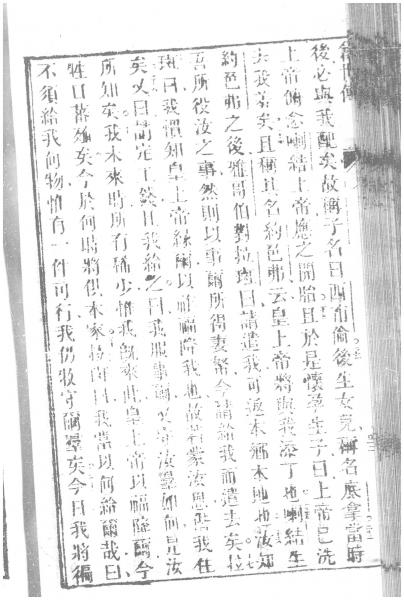 後必與我配矣故稱子名曰西布倫後生女兒稱名底拿當時
上帝俯念喇結上帝應之開胎且於是懷孕生子曰上帝已洗
去我羞矣且稱其名約邑弗云皇上帝將與我添丁也喇結生
約邑弗之後雅哥伯對拉班曰請遣我可返本鄉本地也汝知
吾所役汝之事然則以事爾所得妻孥今請給我而遣去矣拉
班曰我慣知皇上帝緣爾以祚福降我也故若蒙汝恩請我住
矣又曰請定工錢且我給之曰我服事爾又牢汝羣如何是汝
所知矣我未來時所有稀少惟我既來此皇上帝以福隆爾今
牲口蕃殖矣今於何時將供本家拉班曰我當以何給爾哉曰
不須給我何物惟有一件可行我仍牧守爾羣矣今日我將徧